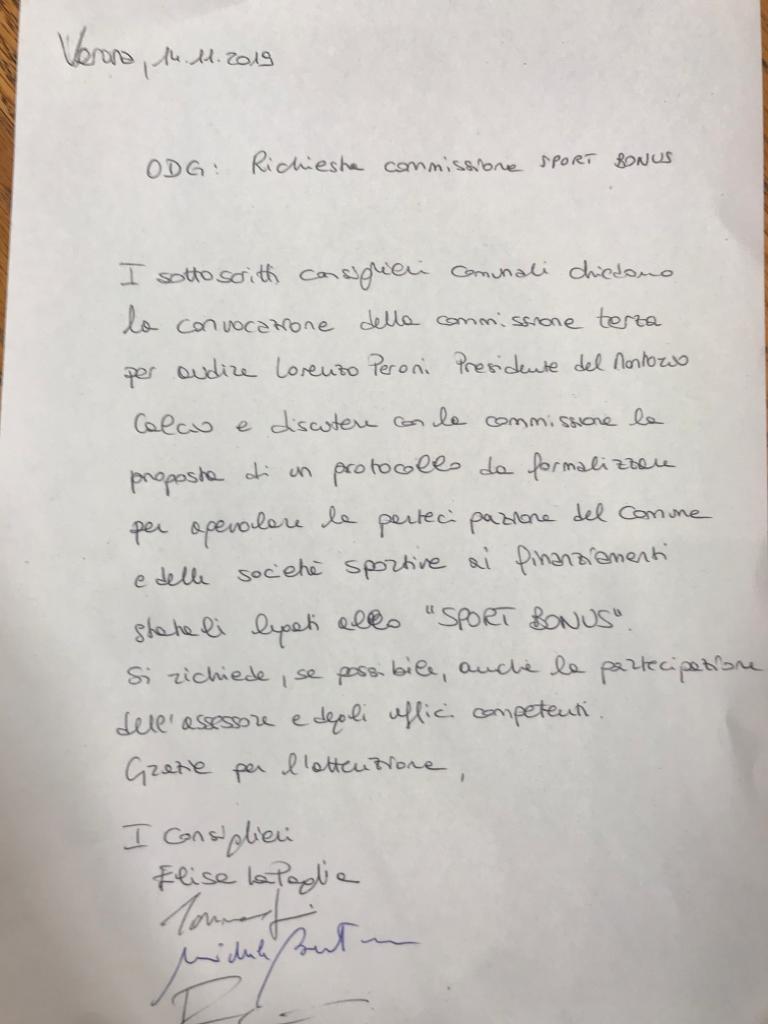 Verona, 14.11.2019
ODG: Richiesta commissione SPORT BONUS
I sottoscritti consiglieri comunali chiedono
la convocazione della commissione terza
per audire Lorenzo Peroni Presidente del Montorio
Calcio e discutere con la commissione la
proposta di un protocollo da formalizzare
per agevolare la partecipazione del Comune
e delle società sportive ai finanziamenti
statali legati allo "SPORT BONUS".
Si richiede, se possibile, anche la partecipazione
dell'assessore e degli uffici competenti.
Grazie per l'attenzione,
I Consiglieri
Elisa La Paglia
Michele Bert